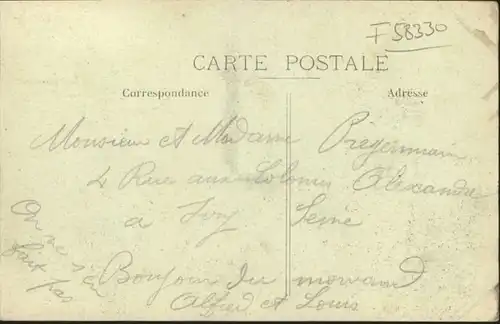 F 58330
CARTE POSTALE
Correspondance
Adresse
Monsieur et Madame Prégermain
4 Rue aux Colonnes Alexandre
à Ivry Seine
On ne s'en
fait pas
Bonjour du morvand
Alfred et Louis